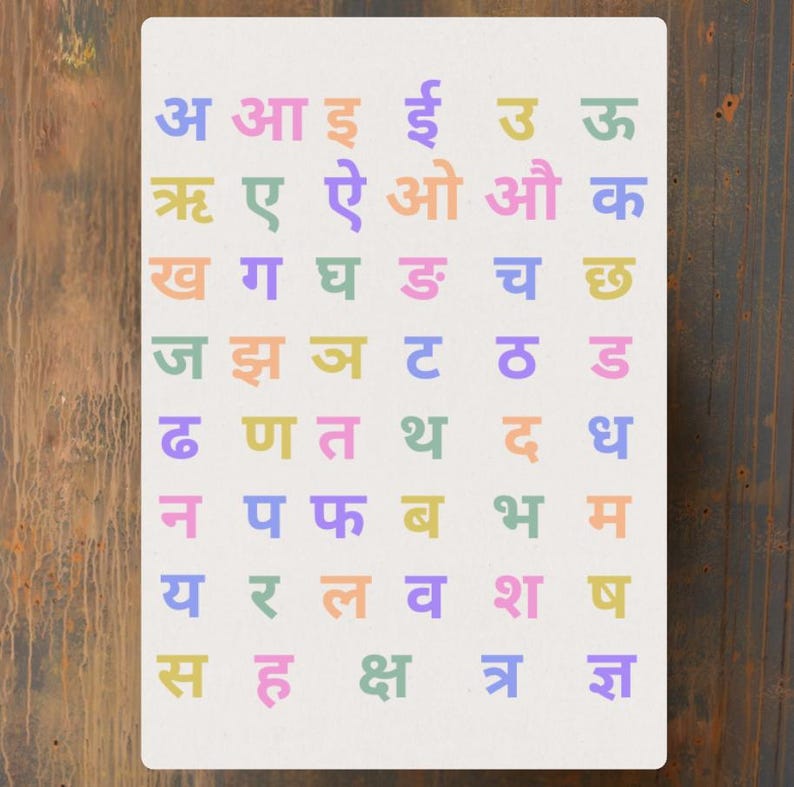 अ आ इ ई उ ऊ
ऋ ए ऐ ओ औ क
ख ग घ ङ च छ
ज झ ञ ट ठ ड
ढ ण त थ द ध
न प फ ब भ म
य र ल व श ष
स ह क्ष त्र ज्ञ